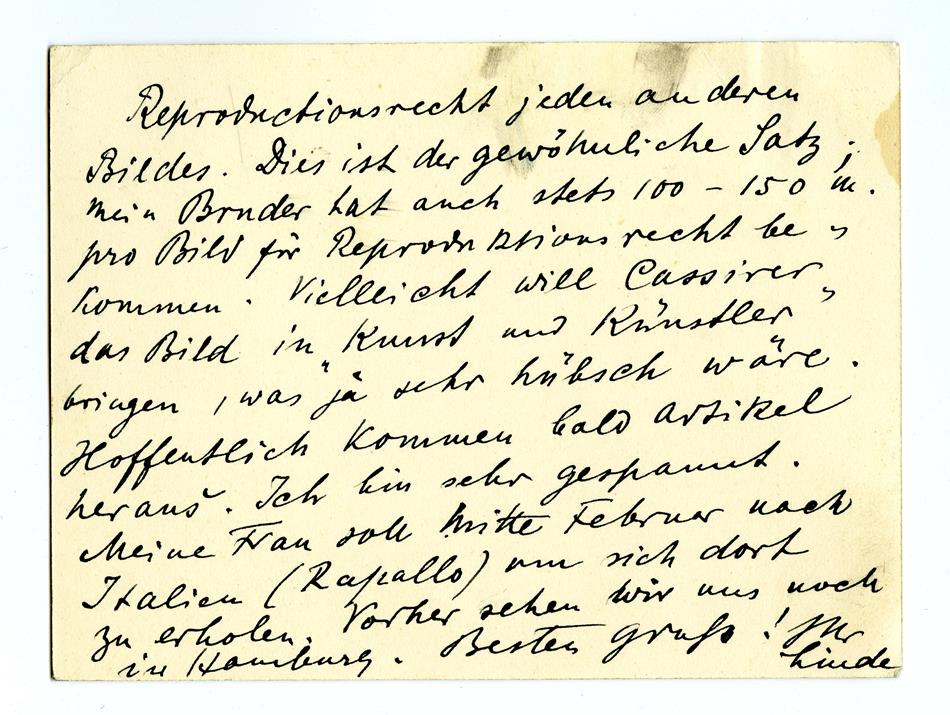 Reproductionsrecht jeden anderen
Bildes. Dies ist der gewöhnliche Satz;
mein Bruder hat auch stets 100 – 150 M.
pro Bild für Reproduktionsrecht be„
kommen. Vielleicht will Cassirer
das Bild in „Kunst und Künstler"
bringen, was ja sehr hübsch wäre.
Hoffentlich kommen bald Artikel
heraus. Ich bin sehr gespannt.
Meine Frau soll Mitte Februar nach
Italien (Rapallo) um sich dort
zu erholen. Vorher sehen wir uns noch
in Hamburg. Besten Gruß! Ihr
Linde